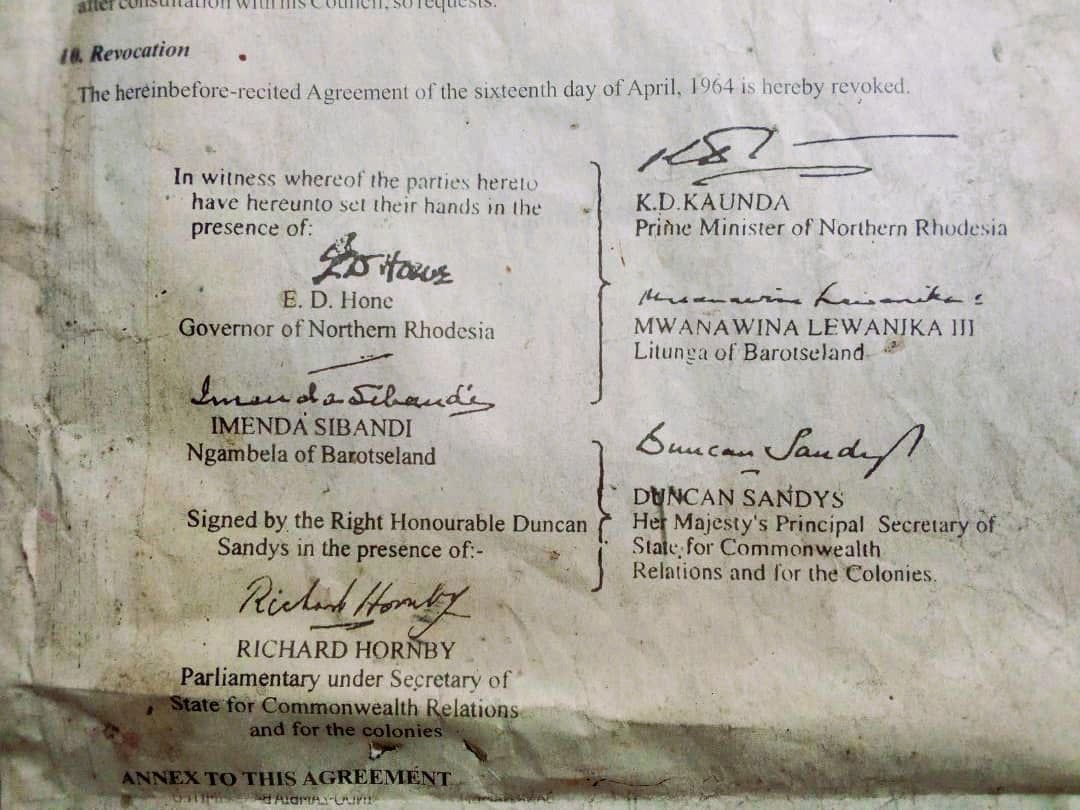 after consultation with his Council, so requests.
10. Revocation
The hereinbefore-recited Agreement of the sixteenth day of April, 1964 is hereby revoked.
In witness whereof the parties hereto
have hereunto set their hands in the
presence of:
E D Hone
E. D. Hone
Governor of Northern Rhodesia
Imenda Sibandi
IMENDA SIBANDI
Ngambela of Barotseland
K.D.KAUNDA
Prime Minister of Northern Rhodesia
Mwanawina Lewanika
MWANAWINA LEWANIKA III
Litunga of Barotseland
Signed by the Right Honourable Duncan
Sandys in the presence of:-
Richard Hornby
RICHARD HORNBY
Parliamentary under Secretary of
State for Commonwealth Relations
and for the colonies
Duncan Sandys
DUNCAN SANDYS
Her Majesty's Principal Secretary of
State for Commonwealth
Relations and for the Colonies.
ANNEX TO THIS AGREEMENT